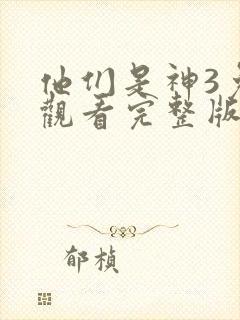 他们是神3
觀看完整版
郁楨